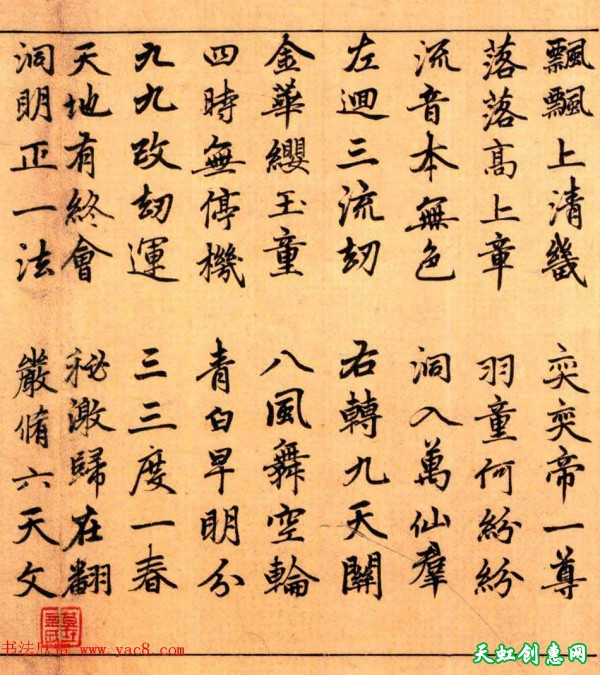 飄飄上清畿 奕奕帝一尊
落落高上章 羽童何紛紛
流音本無色 洞入萬仙羣
左迴三流劫 右轉九天關
金華纓玉童 八風舞空輪
四時無停機 青白早明分
九九改劫運 三三度一春
天地有終會 秘激歸在翻
洞明正一法 嚴脩六天文
www.yac8.com
天虹创惠网